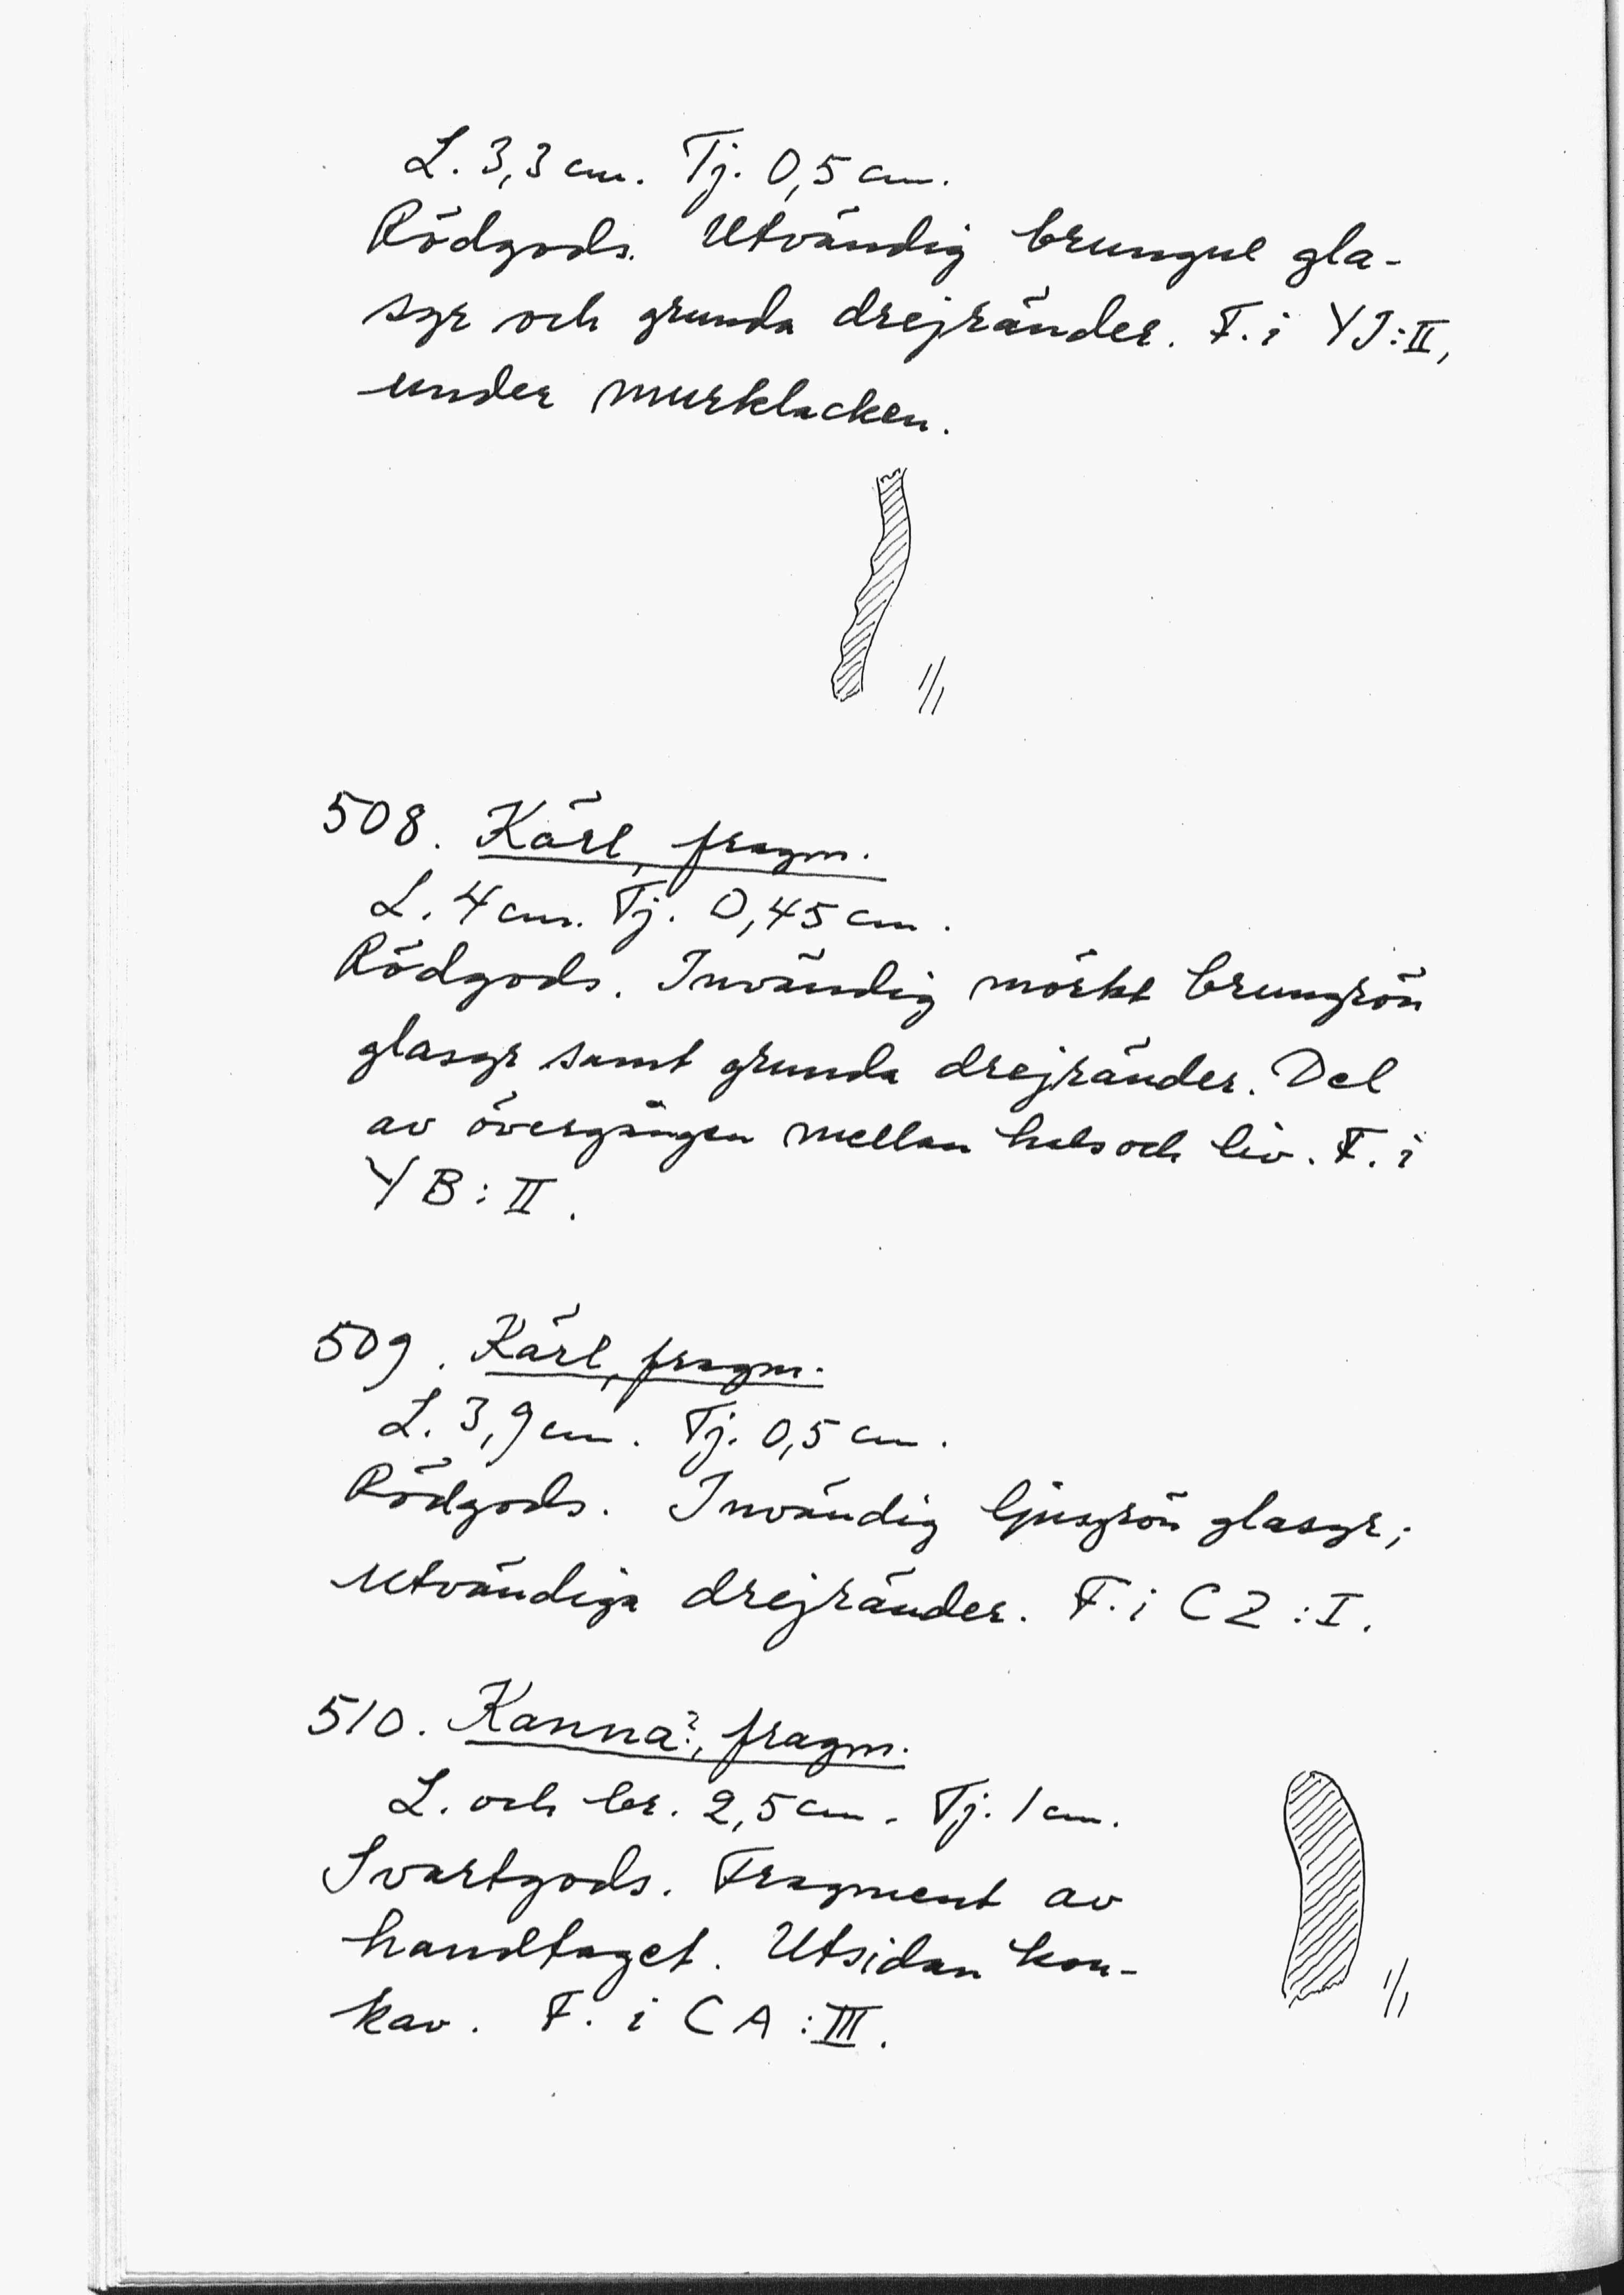 L. 3,3 cm. Tj. 0,5 cm.
Rödgods. Utvändig brungul gla-
syr och grunda drejränder. F. i YJ:II,
under murklacken.
1/1
508. Kärl, fragm.
L. 4 cm. Tj. 0,45 cm.
Rödgods. Invändig mörkt brungrön
glasyr samt grunda drejränder. Del
av övergången mellan hals och liv. F. i
YB:II.
509. Kärl, fragm.
L. 3,9 cm. Tj. 0,5 cm.
Rödgods. Invändig ljusgrön glasyr;
utvändiga drejränder. F. i CZ:I.
510. Kanna?, fragm.
L. och br. 2,5 cm. Tj. 1 cm.
Svartgods. Fragment av
handtaget. Utsidan kon-
kav. F. i CA:III.
1/1